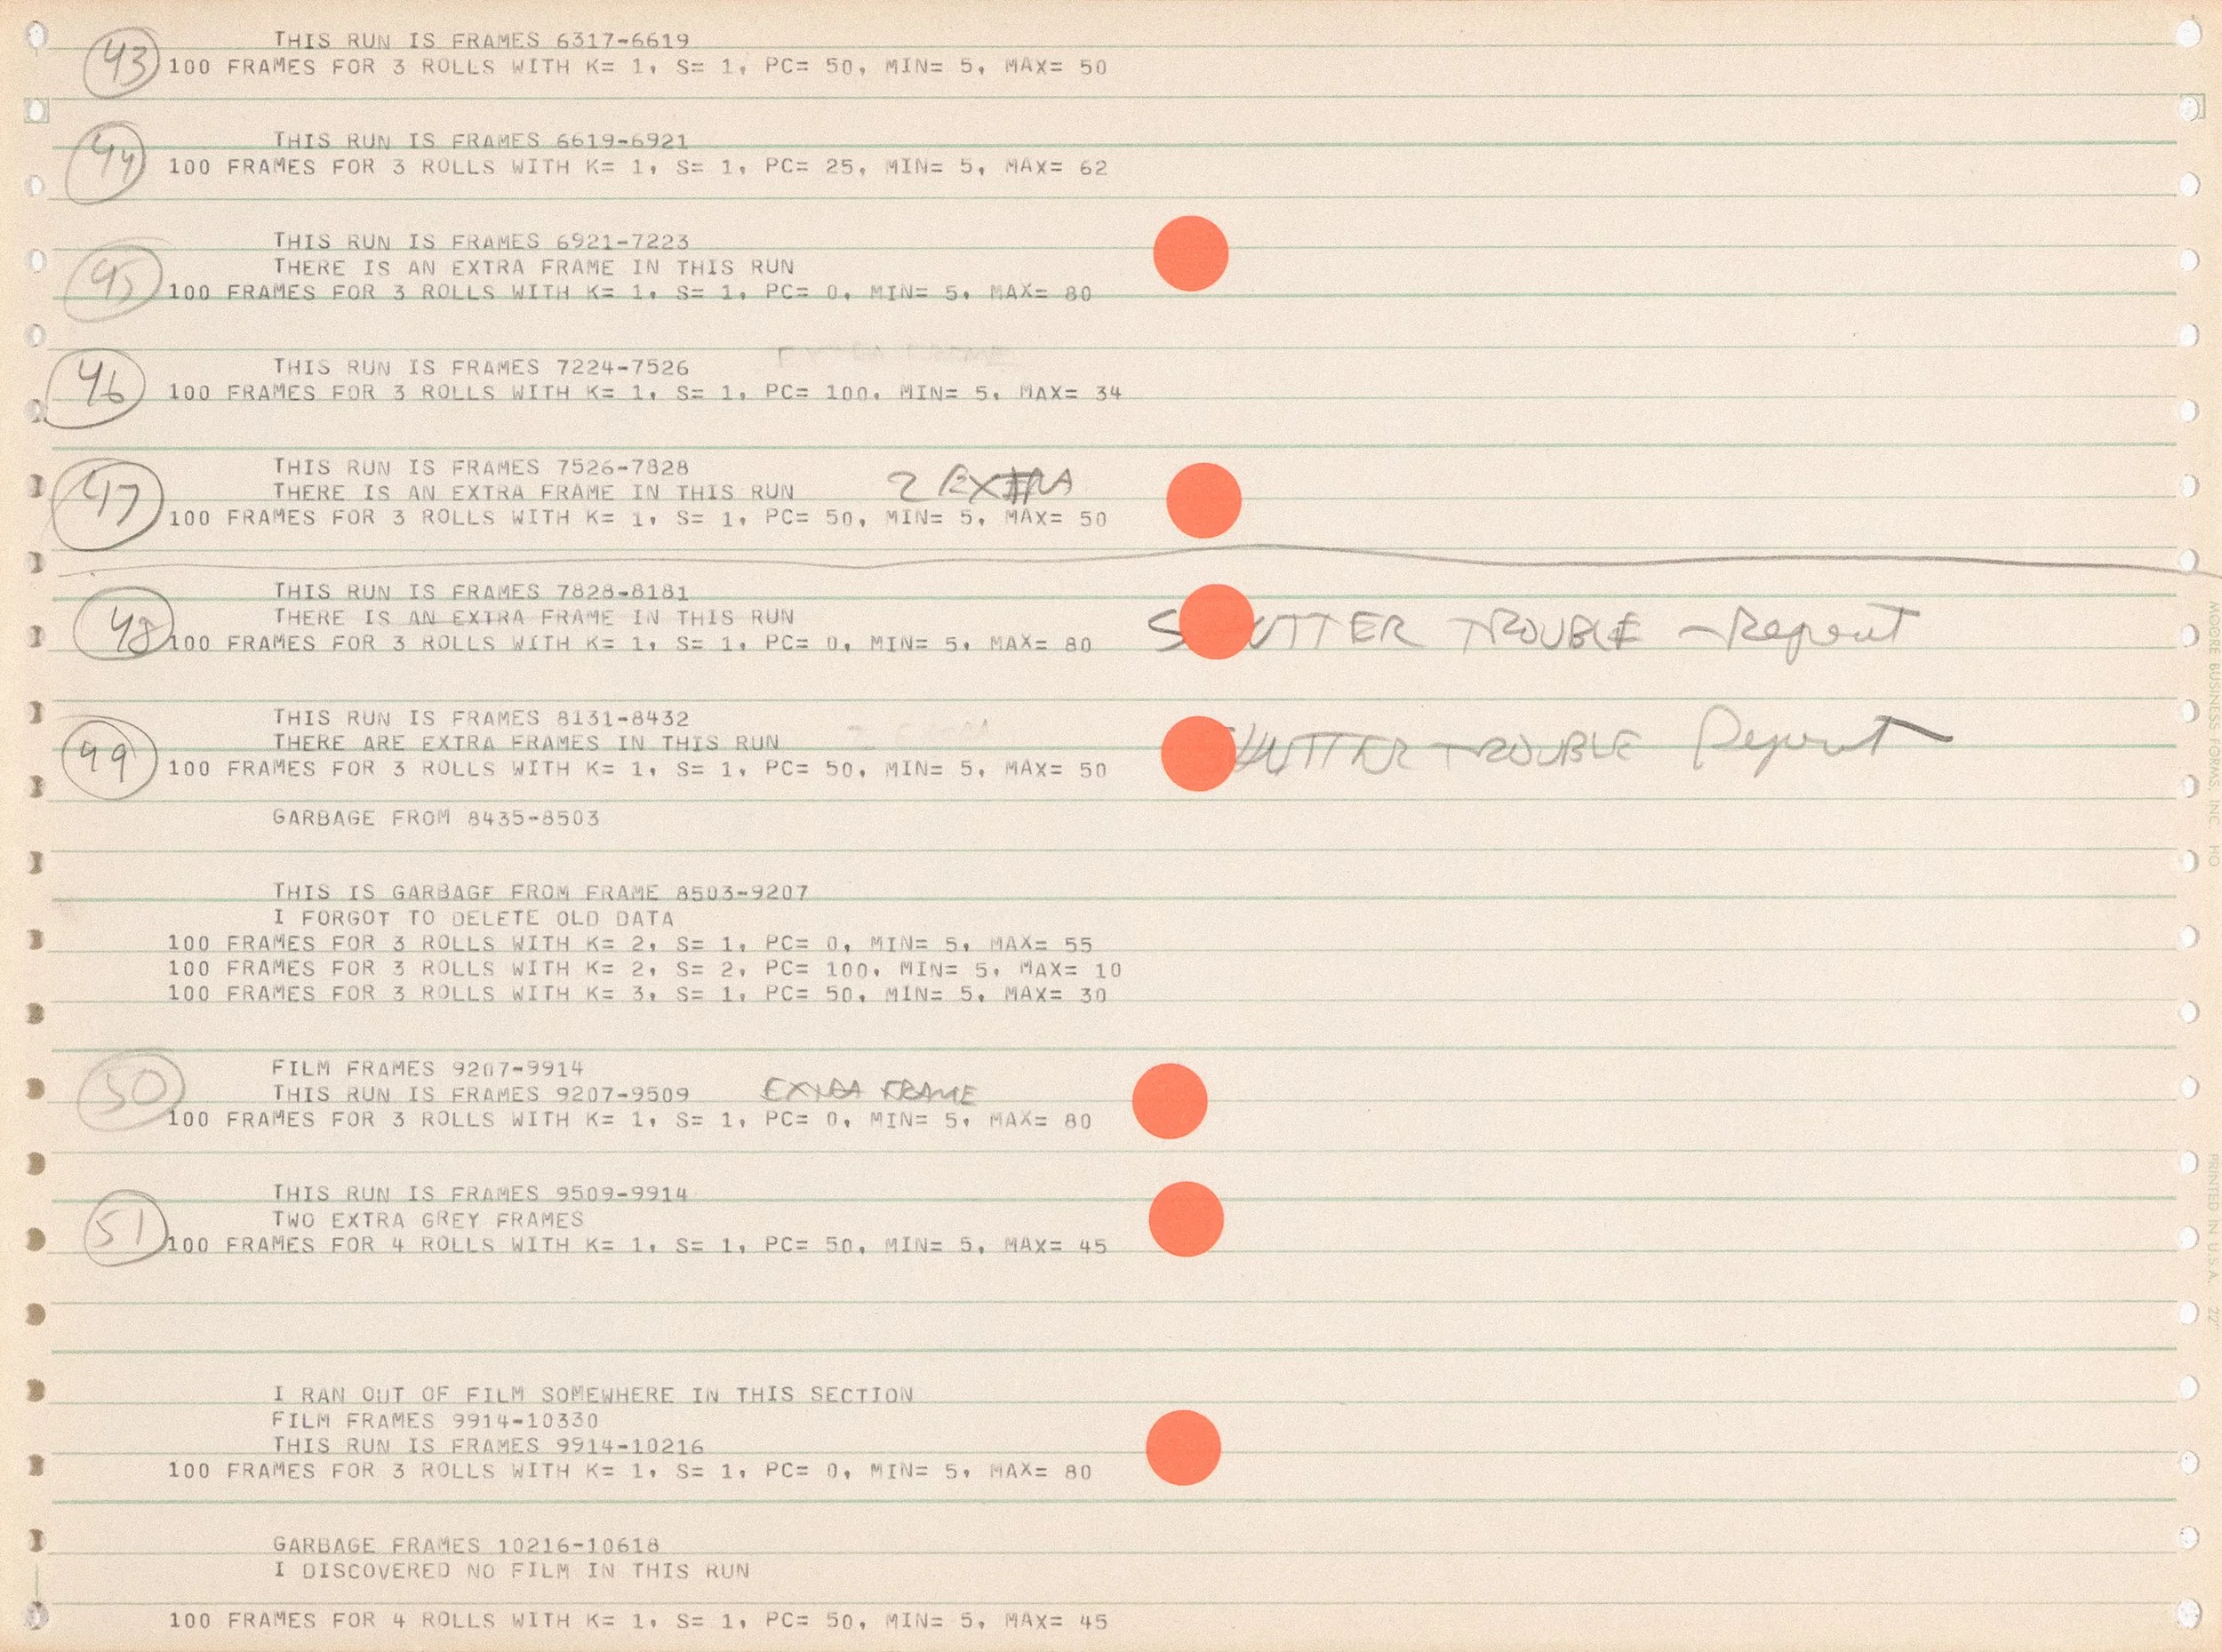 THIS RUN IS FRAMES 6317-6619
43 100 FRAMES FOR 3 ROLLS WITH K= 1, S= 1, PC= 50, MIN= 5, MAX= 50
THIS RUN IS FRAMES 6619-6921
44 100 FRAMES FOR 3 ROLLS WITH K= 1, S= 1, PC= 25, MIN= 5, MAX= 62
THIS RUN IS FRAMES 6921-7223
THERE IS AN EXTRA FRAME IN THIS RUN
45 100 FRAMES FOR 3 ROLLS WITH K= 1, S= 1, PC= 0, MIN= 5, MAX= 80
EXTRA FRAME
THIS RUN IS FRAMES 7224-7526
46 100 FRAMES FOR 3 ROLLS WITH K= 1, S= 1, PC= 100, MIN= 5, MAX= 34
THIS RUN IS FRAMES 7526-7828
THERE IS AN EXTRA FRAME IN THIS RUN 2 EXTRA
47 100 FRAMES FOR 3 ROLLS WITH K= 1, S= 1, PC= 50, MIN= 5, MAX= 50
THIS RUN IS FRAMES 7828-8181
THERE IS AN EXTRA FRAME IN THIS RUN
48 100 FRAMES FOR 3 ROLLS WITH K= 1, S= 1, PC= 0, MIN= 5, MAX= 80 TROUBLE - Repeat
THIS RUN IS FRAMES 8131-8432
THERE ARE EXTRA FRAMES IN THIS RUN TROUBLE Repeat
49 100 FRAMES FOR 3 ROLLS WITH K= 1, S= 1, PC= 50, MIN= 5, MAX= 50
GARBAGE FROM 8435-8503
THIS IS GARBAGE FROM FRAME 8503-9207
I FORGOT TO DELETE OLD DATA
100 FRAMES FOR 3 ROLLS WITH K= 2, S= 1, PC= 0, MIN= 5, MAX= 55
100 FRAMES FOR 3 ROLLS WITH K= 2, S= 2, PC= 100, MIN= 5, MAX= 10
100 FRAMES FOR 3 ROLLS WITH K= 3, S= 1, PC= 50, MIN= 5, MAX= 30
FILM FRAMES 9207-9914
50 THIS RUN IS FRAMES 9207-9509 EXTRA FRAME
100 FRAMES FOR 3 ROLLS WITH K= 1, S= 1, PC= 0, MIN= 5, MAX= 80
THIS RUN IS FRAMES 9509-9914
TWO EXTRA GREY FRAMES
51 100 FRAMES FOR 4 ROLLS WITH K= 1, S= 1, PC= 50, MIN= 5, MAX= 45
I RAN OUT OF FILM SOMEWHERE IN THIS SECTION
FILM FRAMES 9914-10330
THIS RUN IS FRAMES 9914-10216
100 FRAMES FOR 3 ROLLS WITH K= 1, S= 1, PC= 0, MIN= 5, MAX= 80
GARBAGE FRAMES 10216-10618
I DISCOVERED NO FILM IN THIS RUN
100 FRAMES FOR 4 ROLLS WITH K= 1, S= 1, PC= 50, MIN= 5, MAX= 45
MOORE BUSINESS FORMS, INC. HO
PRINTED IN U.S.A. 22"